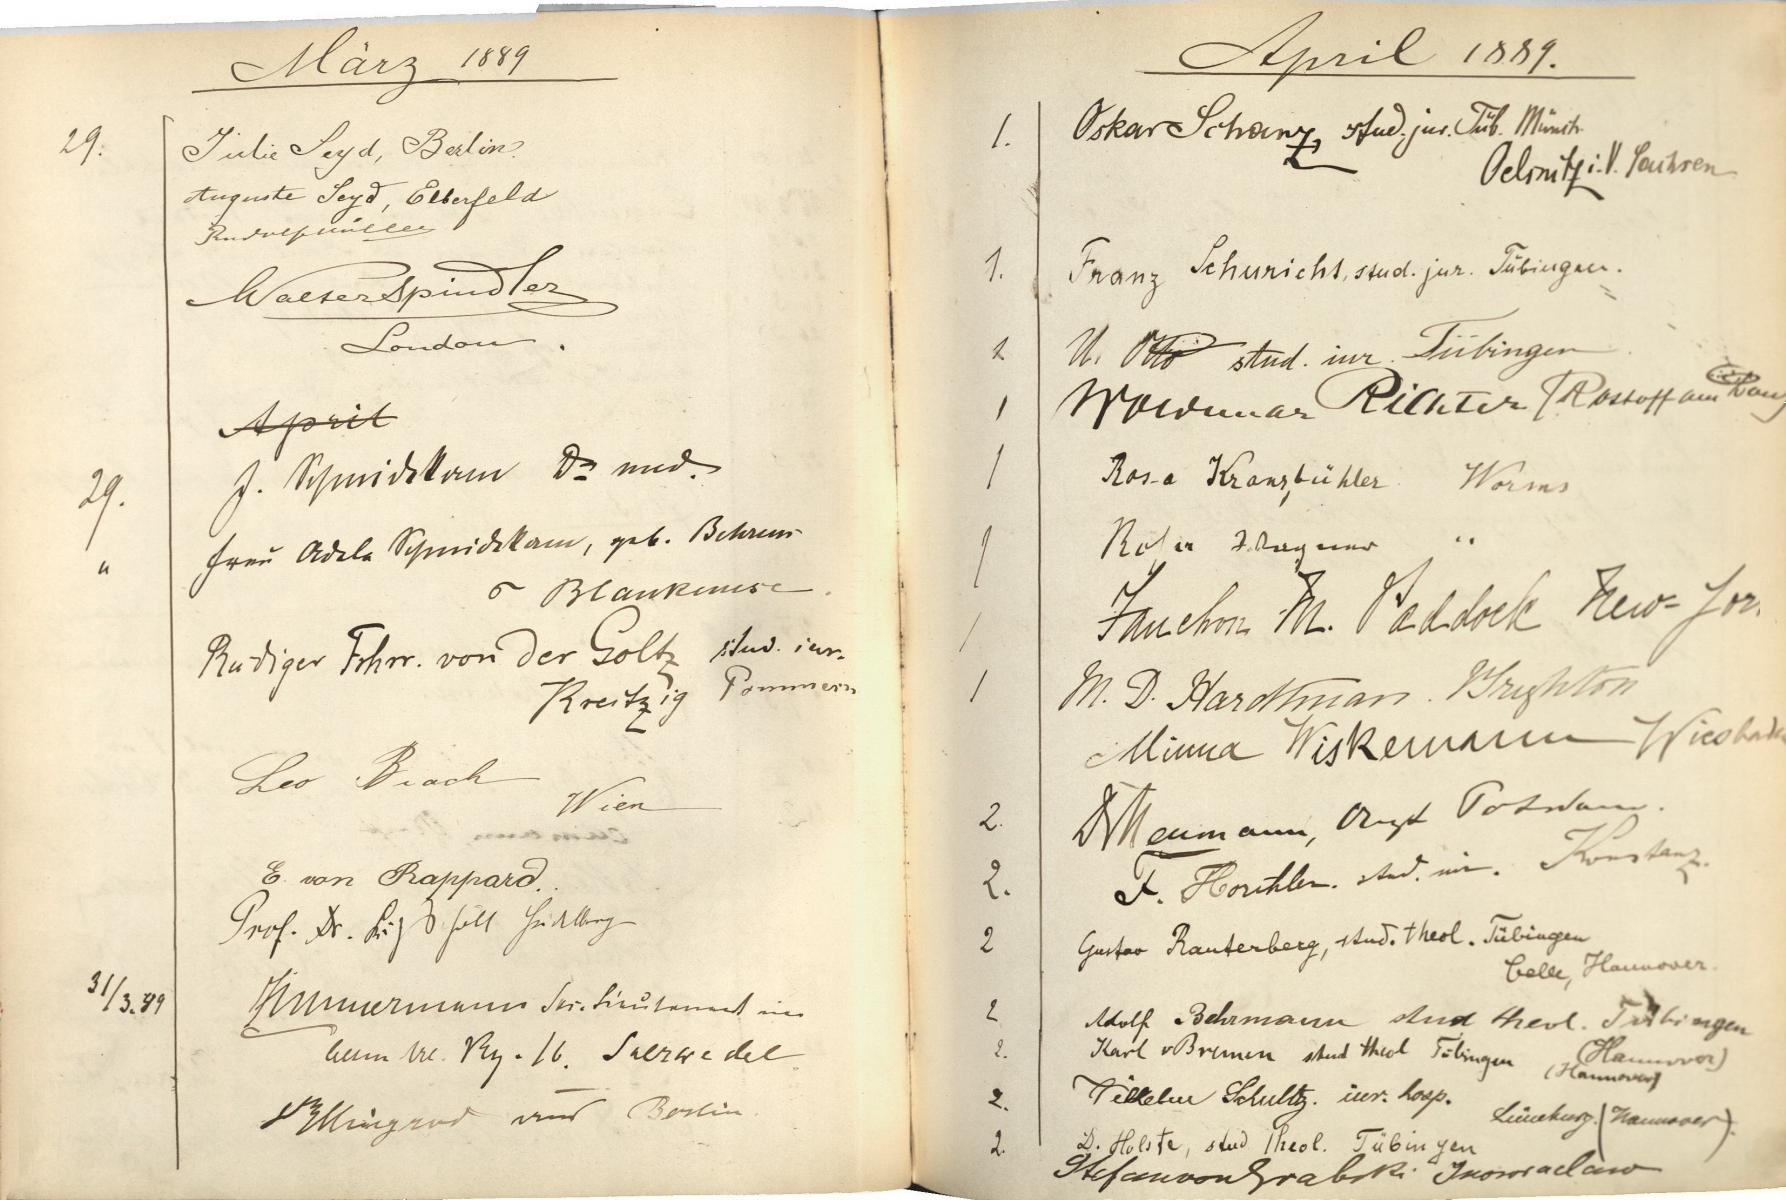 März 1889
29. Julie Seyd, Berlin.
Auguste Seyd, Elberfeld
Rudolf Müller
Walter Spindler
London.
April
29. J. Schmidtkam Dr med.
" Frau Adele Schmidtkam, geb. Behrens
Blankenese.
Rüdiger Frhrr. von der Goltz stud. iur.
Kreitzig Pommern
Leo Brach
Wien
E. von Rappard.
Prof. Dr.
31/3.89 Zimmermann Sec. Lieutenant im
Ulan. Rg. 16. Salzwedel
und Berlin.
April 1889.
1. Oskar Schanz, stud. jur. Tüb. Münch.
Oelsnitz i. V. Sachsen
1. Franz Schuricht, stud. jur. Tübingen.
1 U. Otto stud. iur. Tübingen
1 Woldemar Richter (Rostoff am Don)
1 Rosa Kranzbühler Worms
1 Rosa Wagner "
1 Fanchon M. Paddock New-Yor
1 M. D. Hardtman. Brighton
Minna Wiskemann Wiesbaden
2. Dr Neumann, Arzt Potsdam.
2. F. stud. iur. Konstanz.
2 Gustav Rauterberg, stud. theol. Tübingen
Celle, Hannover.
2 Adolf Behrmann stud theol. Tübingen
(Hannover)
2. Karl v Bremen stud theol Tübingen
(Hannover)
2. Wilhelm Schultz. iur. hosp.
Lüneburg. (Hannover).
2. D. Holste, stud theol. Tübingen
Stefan von Grabski Inowraclaw